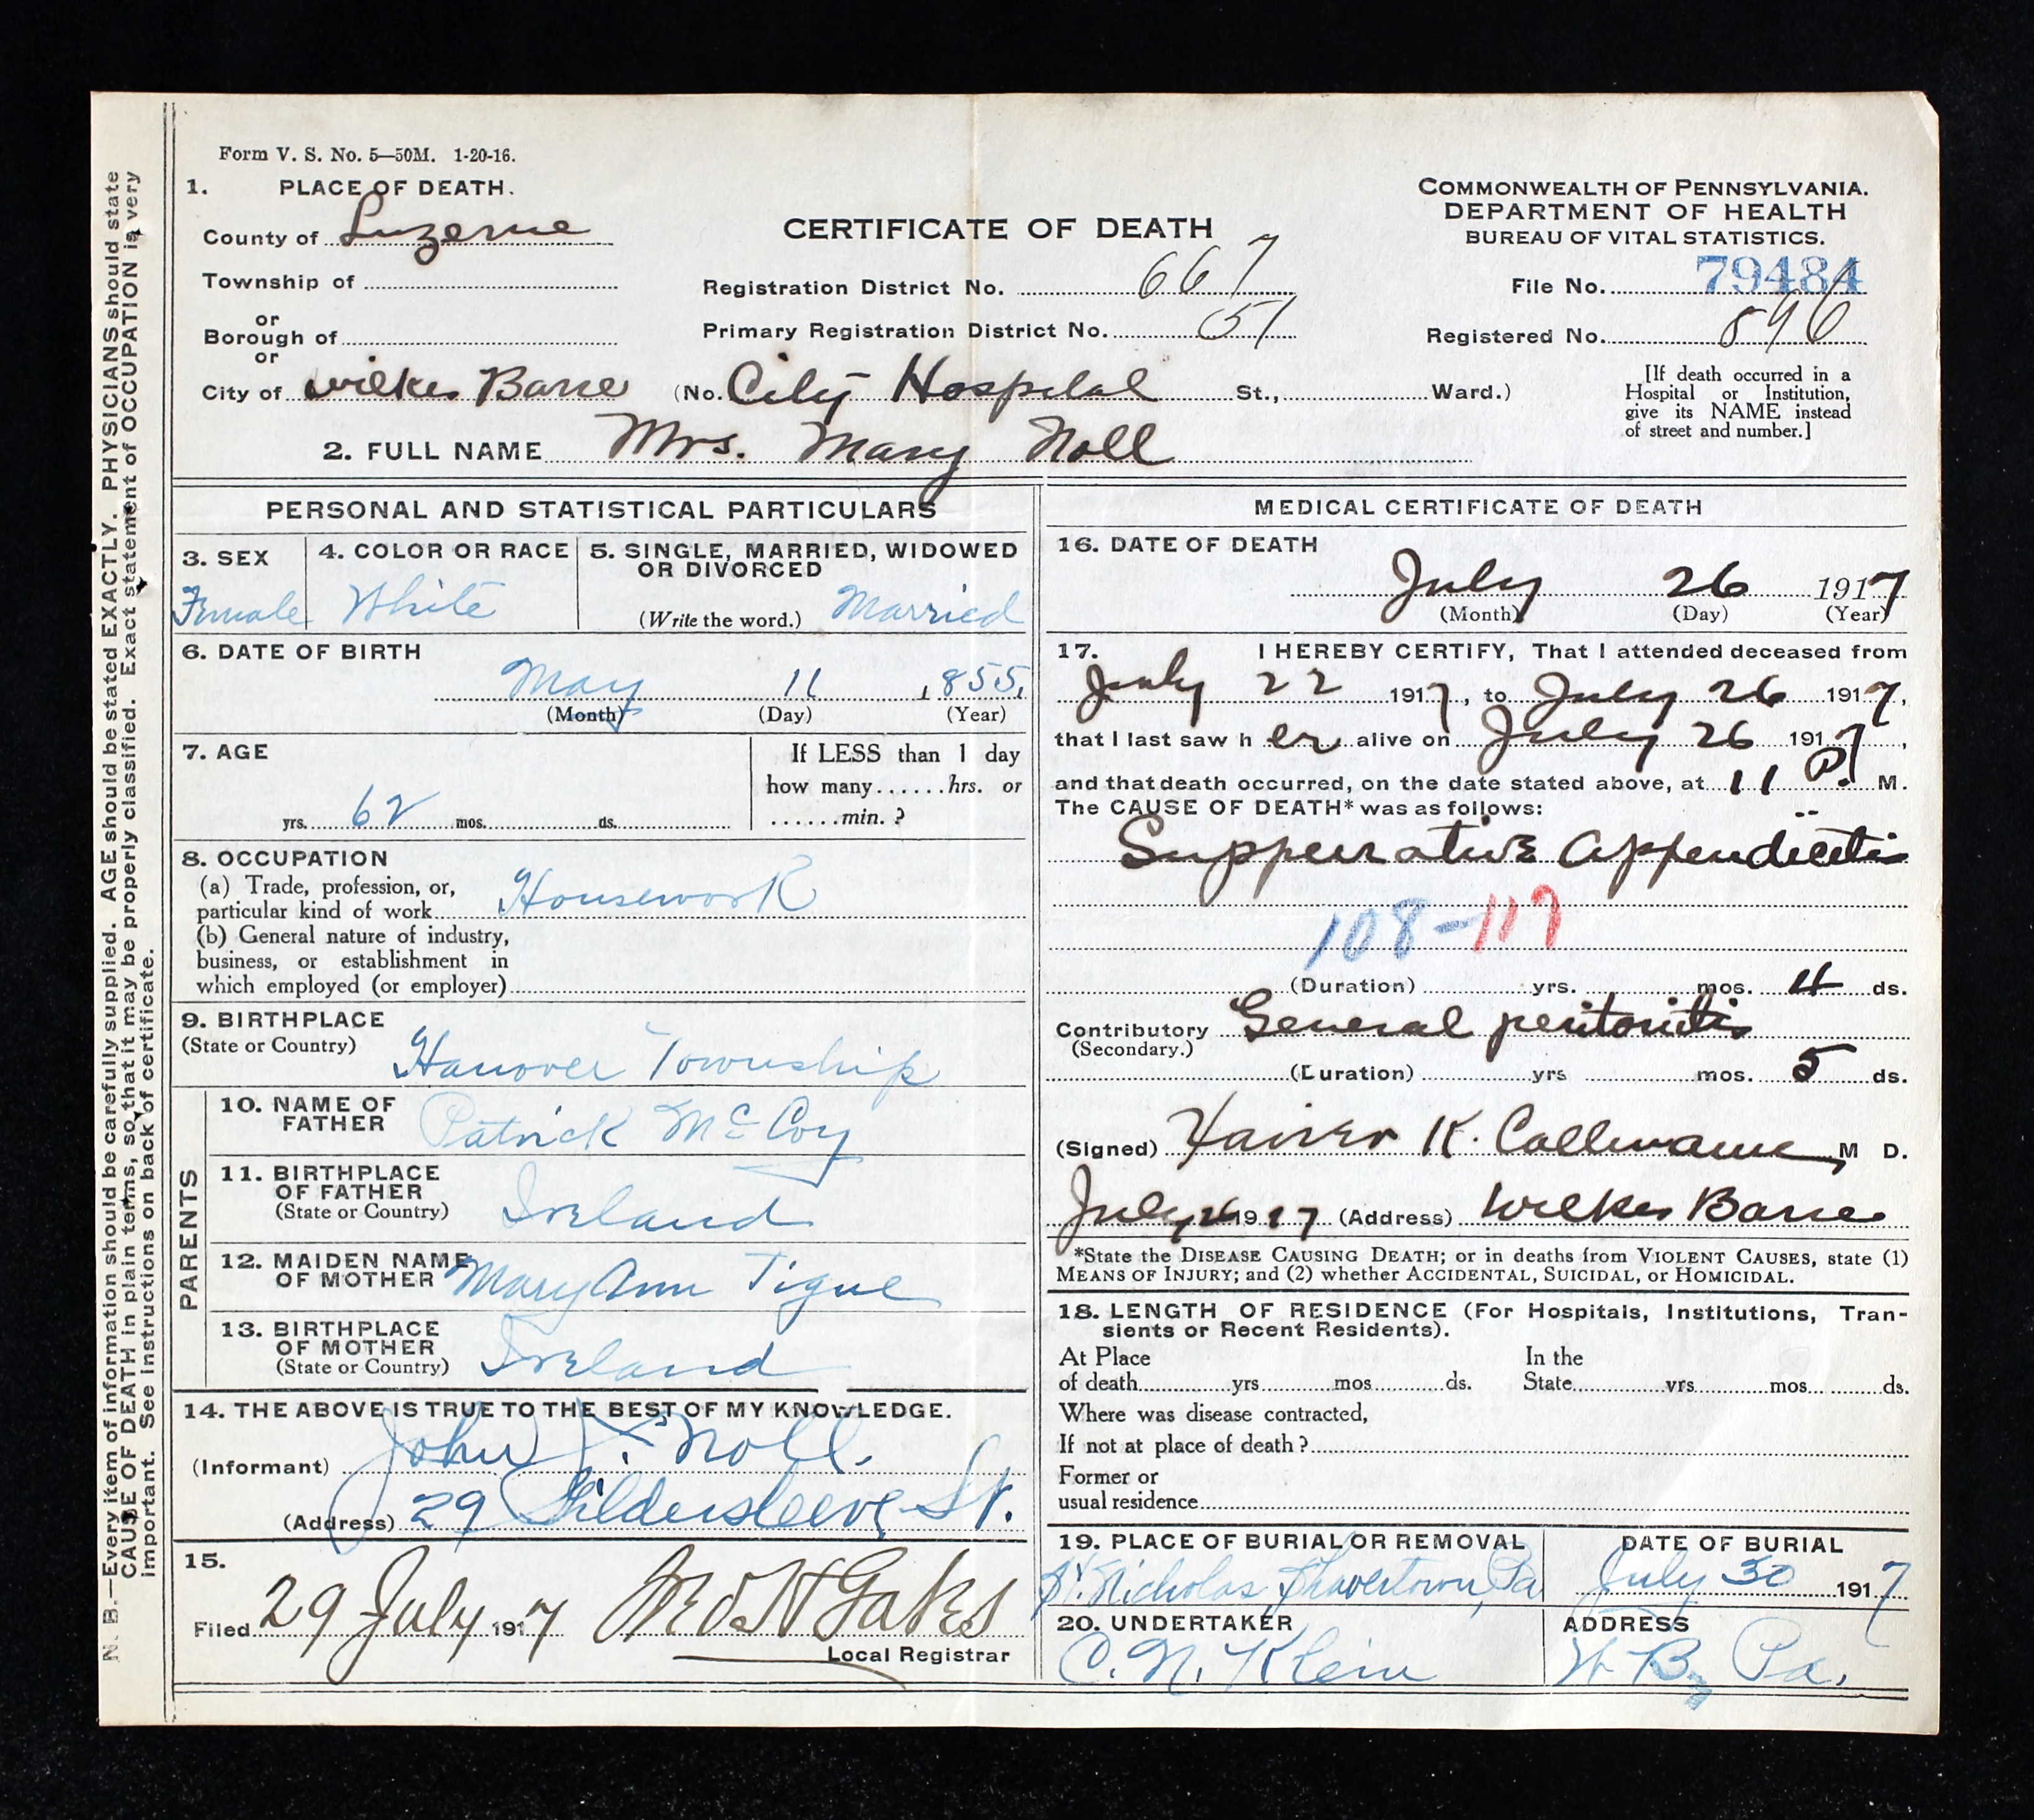 Form V. S. No. 5—50M. 1-20-16.
1. PLACE OF DEATH.
County of Luzerne
Township of
or
Borough of
or
City of Wilkes Barre (No. City Hospital St., Ward.)
CERTIFICATE OF DEATH
Registration District No. 667
Primary Registration District No. 51
COMMONWEALTH OF PENNSYLVANIA.
DEPARTMENT OF HEALTH
BUREAU OF VITAL STATISTICS.
File No. 79484
Registered No.
[If death occurred in a
Hospital or Institution,
give its NAME instead
of street and number.]
2. FULL NAME Mrs. Mary Noll
PERSONAL AND STATISTICAL PARTICULARS
3. SEX
Female
4. COLOR OR RACE
White
5. SINGLE, MARRIED, WIDOWED
OR DIVORCED
(Write the word.) Married
6. DATE OF BIRTH
May 11 1855
(Month) (Day) (Year)
7. AGE
62
yrs. mos. ds.
If LESS than 1 day
how many......hrs. or
......min. ?
8. OCCUPATION
(a) Trade, profession, or,
particular kind of work Housework
(b) General nature of industry,
business, or establishment in
which employed (or employer)
9. BIRTHPLACE
(State or Country)
Hanover Township
PARENTS
10. NAME OF
FATHER
Patrick McCoy
11. BIRTHPLACE
OF FATHER
(State or Country)
Ireland
12. MAIDEN NAME
OF MOTHER
Mary Ann Tigue
13. BIRTHPLACE
OF MOTHER
(State or Country)
Ireland
14. THE ABOVE IS TRUE TO THE BEST OF MY KNOWLEDGE.
(Informant) John J. Noll.
(Address) 29 Gildersleeve St.
15.
Filed 29 July 1917
Local Registrar
MEDICAL CERTIFICATE OF DEATH
16. DATE OF DEATH
July 26 1917
(Month) (Day) (Year)
17. I HEREBY CERTIFY, That I attended deceased from
July 22 1917, to July 26 1917,
that I last saw her alive on July 26 1917,
and that death occurred, on the date stated above, at 11 P. M.
The CAUSE OF DEATH* was as follows:
Suppurative Appendicitis
108-117
(Duration) yrs. mos. 4 ds.
Contributory General peritonitis
(Secondary.)
(Duration) yrs mos. 5 ds.
(Signed) K. M D.
July 26 1917 (Address) Wilkes Barre
*State the DISEASE CAUSING DEATH; or in deaths from VIOLENT CAUSES, state (1)
MEANS OF INJURY; and (2) whether ACCIDENTAL, SUICIDAL, or HOMICIDAL.
18. LENGTH OF RESIDENCE (For Hospitals, Institutions, Tran-
sients or Recent Residents).
At Place
of death yrs mos ds.
In the
State yrs mos ds.
Where was disease contracted,
If not at place of death ?
Former or
usual residence
19. PLACE OF BURIAL OR REMOVAL
St. Nicholas, Shavertown, Pa
DATE OF BURIAL
July 30 1917
20. UNDERTAKER
C. N. Klein
ADDRESS
W B, Pa.
N. B.—Every item of information should be carefully supplied. AGE should be stated EXACTLY. PHYSICIANS should state
CAUSE OF DEATH in plain terms, so that it may be properly classified. Exact statement of OCCUPATION is very
important. See instructions on back of certificate.